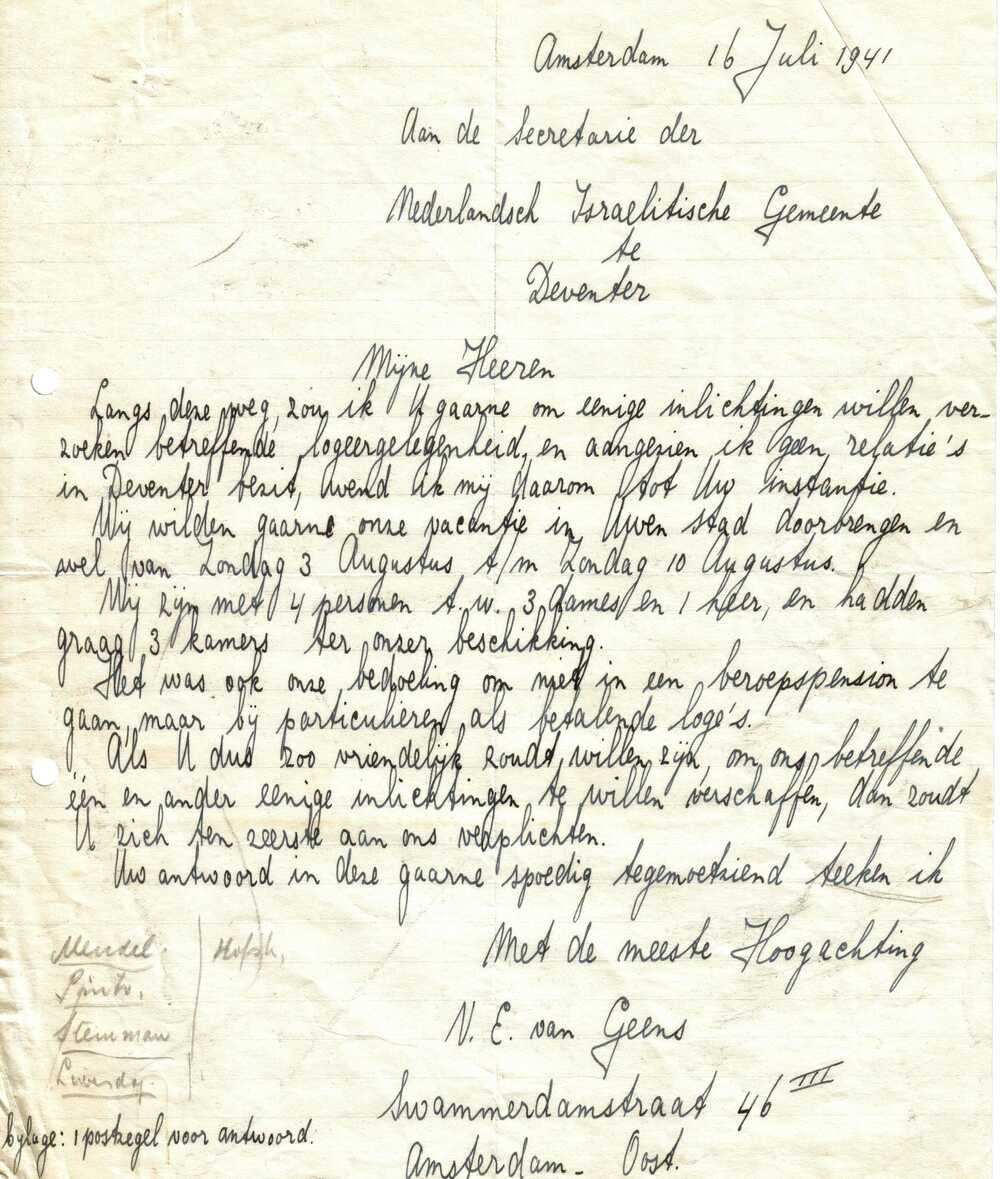 Amsterdam 16 Juli 1941
Aan de Secretarie der
Nederlandsch Israelitische Gemeente
te
Deventer
Mijne Heeren
Langs deze weg, zou ik U gaarne om eenige inlichtingen willen ver-
zoeken betreffende logeergelegenheid, en aangezien ik geen relatie's
in Deventer bezit, wend ik mij daarom tot Uw instantie.
Wij wilden gaarne onze vacantie in Uwen stad doorbrengen en
wel van Zondag 3 Augustus t/m Zondag 10 Augustus.
Wij zijn met 4 personen t.w. 3 dames en 1 heer, en hadden
graag 3 kamers ter onzer beschikking.
Het was ook onze bedoeling om niet in een beroepspension te
gaan, maar bij particulieren als betalende logé's.
Als U dus zoo vriendelijk zoudt willen zijn, om ons betreffende
één en ander eenige inlichtingen te willen verschaffen, dan zoudt
U zich ten zeerste aan ons verplichten.
Uw antwoord in deze gaarne spoedig tegemoetziend teeken ik
Met de meeste Hoogachting
V. E. van Geens
Swammerdamstraat 46 III
Amsterdam - Oost.
Stemman
bijlage: 1 postzegel voor antwoord.